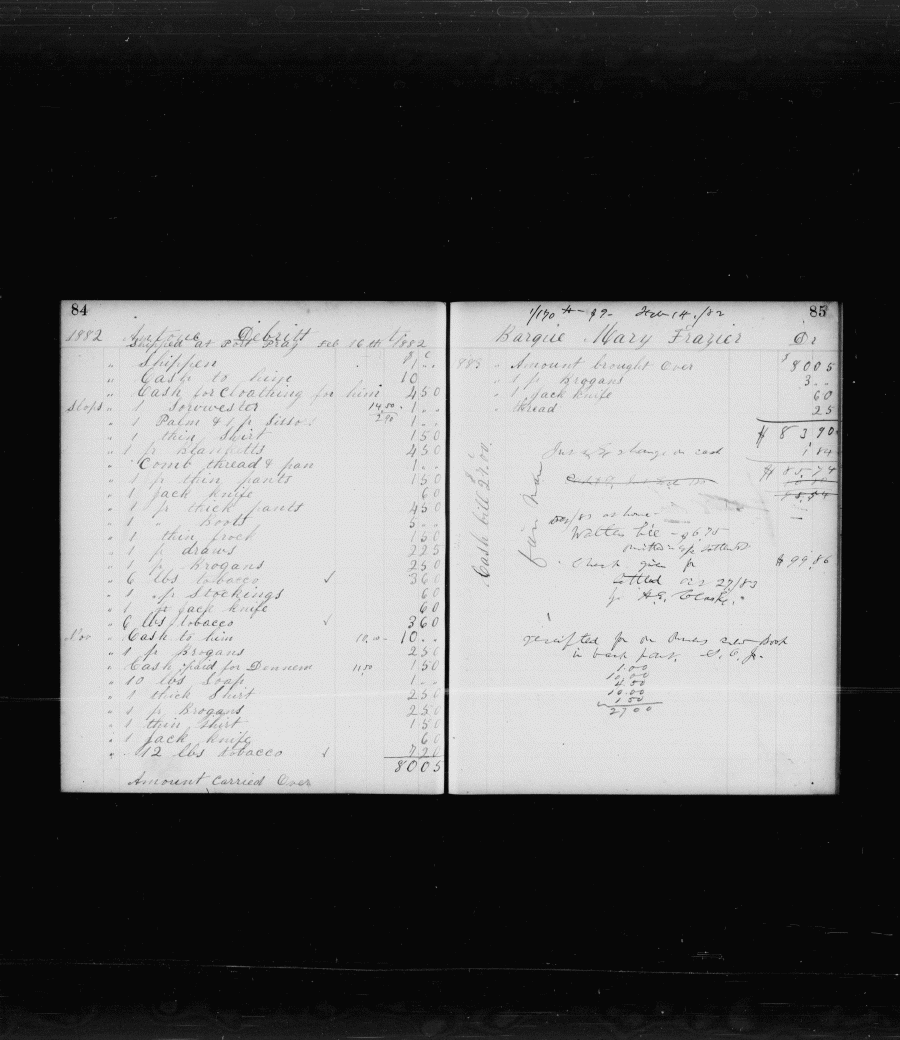 84
1882 Antone Debritt Dr
Shipped at Port Pray Feb 16th 1882
" Shippen 1 " "
" Cash to him 10
" Cash for Cloathing for him 4 50
Slops " 1 Sorowester 14,50 1 " "
" 1 Palm & 1 p Sissors 2 90 1 " "
" 1 thin Shirt 1 50
" 1 pr Blanketts 4 50
" Comb thread & pan 1 " "
" 1 p thin pants 1 50
" 1 Jack knife 60
" 1 pr thick pants 4 50
" 1 " Boots 5 " "
" 1 thin frock 1 50
" 1 p draws 2 25
" 1 p Brogans 2 50
" 6 lbs tobacco √ 3 60
" 1 p Stockings 60
" 1 Jack knife 60
" 6 lbs tobacco √ 3 60
Nov " Cash to him 10,00 10 " "
" 1 p Brogans 2 50
" Cash paid for 1,50 1 50
" 10 lbs Soap 1 " "
" 1 thick Shirt 2 50
" 1 p Brogans 2 50
" 1 thin Shirt 1 50
" 1 Jack knife 60
" 12 lbs tobacco √ 7 20
80 05
Amount Carried Over
1/170th 89- Feb 14/82 85
Barque Mary Frazier Dr
883 " Amount brought Over $ 80 05
" 1 p Brogans 3 " "
" 1 Jack knife 60
" thread 25
$ 83 90
on cash 1 84
$ 85,74
Cash bill 27.00
Walter Lee - 96,75
Check given for $ 99,86
settled 27/83
receipted for on Crew Book
in back part.
1.00
10.00
4.50
10.00
1 50
27 00